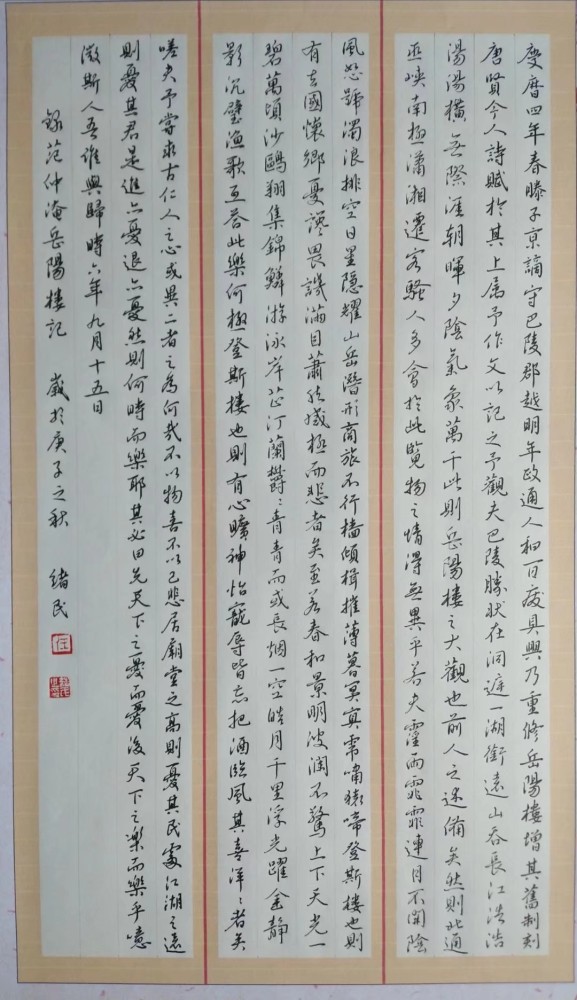 慶曆四年春滕子京謫守巴陵郡越明年政通人和百廢具興乃重修岳陽樓增其舊制刻
唐賢今人詩賦於其上屬予作文以記之予觀夫巴陵勝狀在洞庭一湖銜遠山吞長江浩浩
湯湯橫無際涯朝暉夕陰氣象萬千此則岳陽樓之大觀也前人之述備矣然則北通
巫峽南極瀟湘遷客騷人多會於此覽物之情得無異乎若夫霪雨霏霏連月不開陰
風怒號濁浪排空日星隱耀山岳潛形商旅不行檣傾楫摧薄暮冥冥虎嘯猿啼登斯樓也則
有去國懷鄉憂讒畏譏滿目蕭然感極而悲者矣至若春和景明波瀾不驚上下天光一
碧萬頃沙鷗翔集錦鱗游泳岸芷汀蘭鬱々青青而或長烟一空皓月千里浮光躍金静
影沉璧漁歌互荅此樂何極登斯樓也則有心曠神怡寵辱皆忘把酒臨風其喜洋々者矣
嗟夫予嘗求古仁人之心或異二者之為何哉不以物喜不以己悲居廟堂之高則憂其民處江湖之遠
則憂其君是進亦憂退亦憂然則何時而樂耶其必曰先天下之憂而憂後天下之樂而樂乎噫
微斯人吾誰與歸時六年九月十五日
錄范仲淹岳陽樓記 歲於庚子之秋 緒民